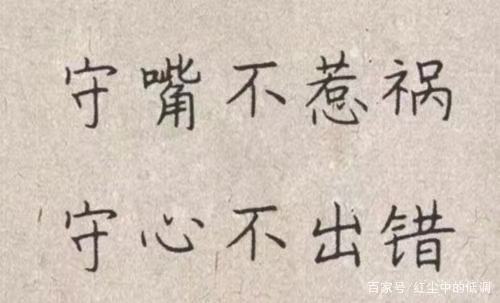 守嘴不惹祸
守心不出错
百家号/红尘中的低调